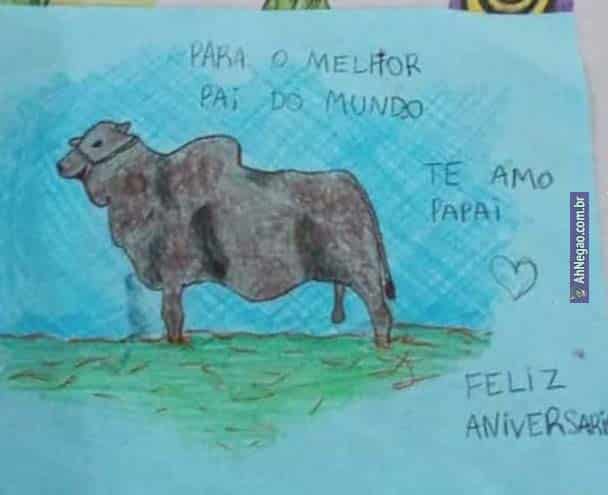 PARA O MELHOR
PAI DO MUNDO
TE AMO
PAPAI
AhNegao.com.br
FELIZ
ANIVERSARI